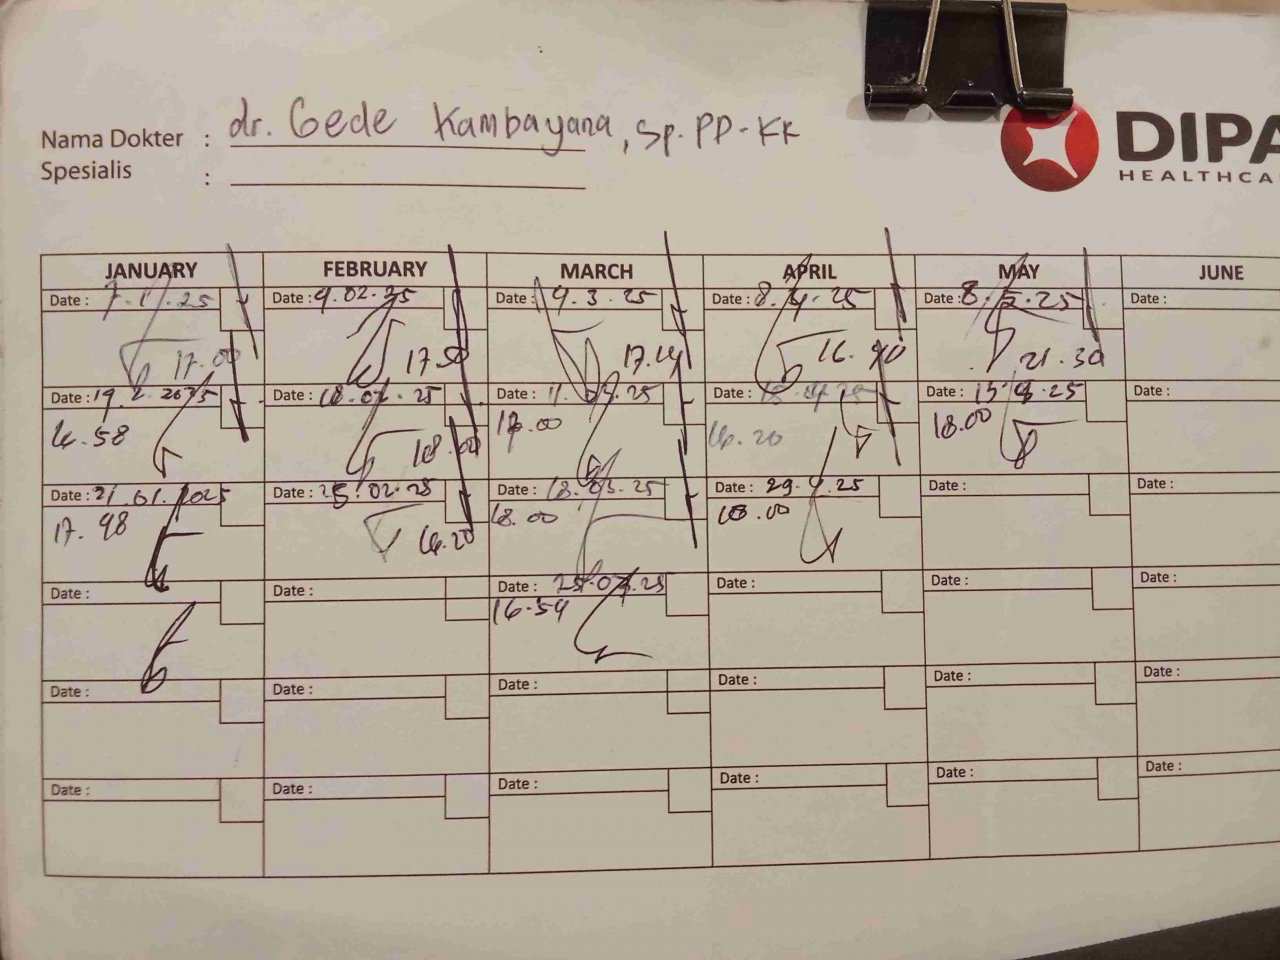 Nama Dokter : dr. Gede Kambayana, Sp.PD-KR
Spesialis :
DIPA
HEALTHCA
JANUARY FEBRUARY MARCH APRIL MAY JUNE
Date : 7.1.25 Date : 9.02.25 Date : 4.3.25 Date : 8.4.25 Date : 8.5.25 Date :
17.00 17.50 17.14 16.40 21.30
Date : 19. Date : 18.02.25 Date : 11.03.25 Date : 15.04.25 Date : 13. .25 Date :
16.58 18.00 17.00 16.20 18.00
Date : 21.01.2025 Date : 25.02.25 Date : 18.03.25 Date : 29.4.25 Date : Date :
17.48 16.20 18.00 18.00
Date : Date : Date : 25.03.25 Date : Date : Date :
16.54
Date : Date : Date : Date : Date : Date :
Date : Date : Date : Date : Date : Date :